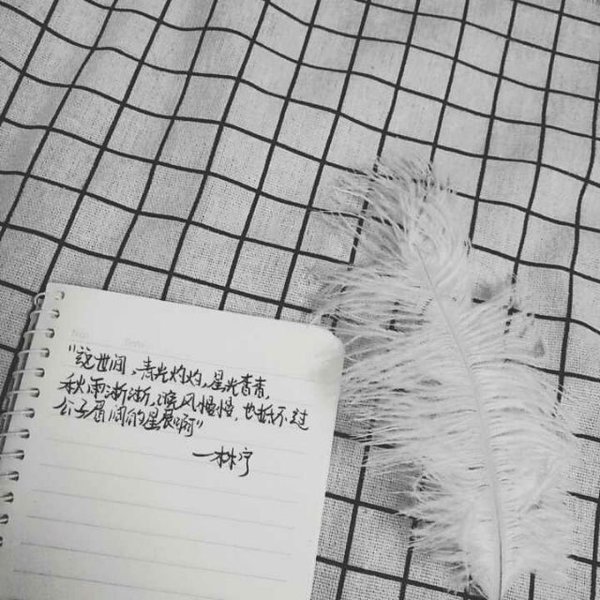 "这世间,春光灼灼,星光杳杳,
秋雨淅淅,晚风慢慢,也抵不过
公子眉间的星辰啊"
—林宁